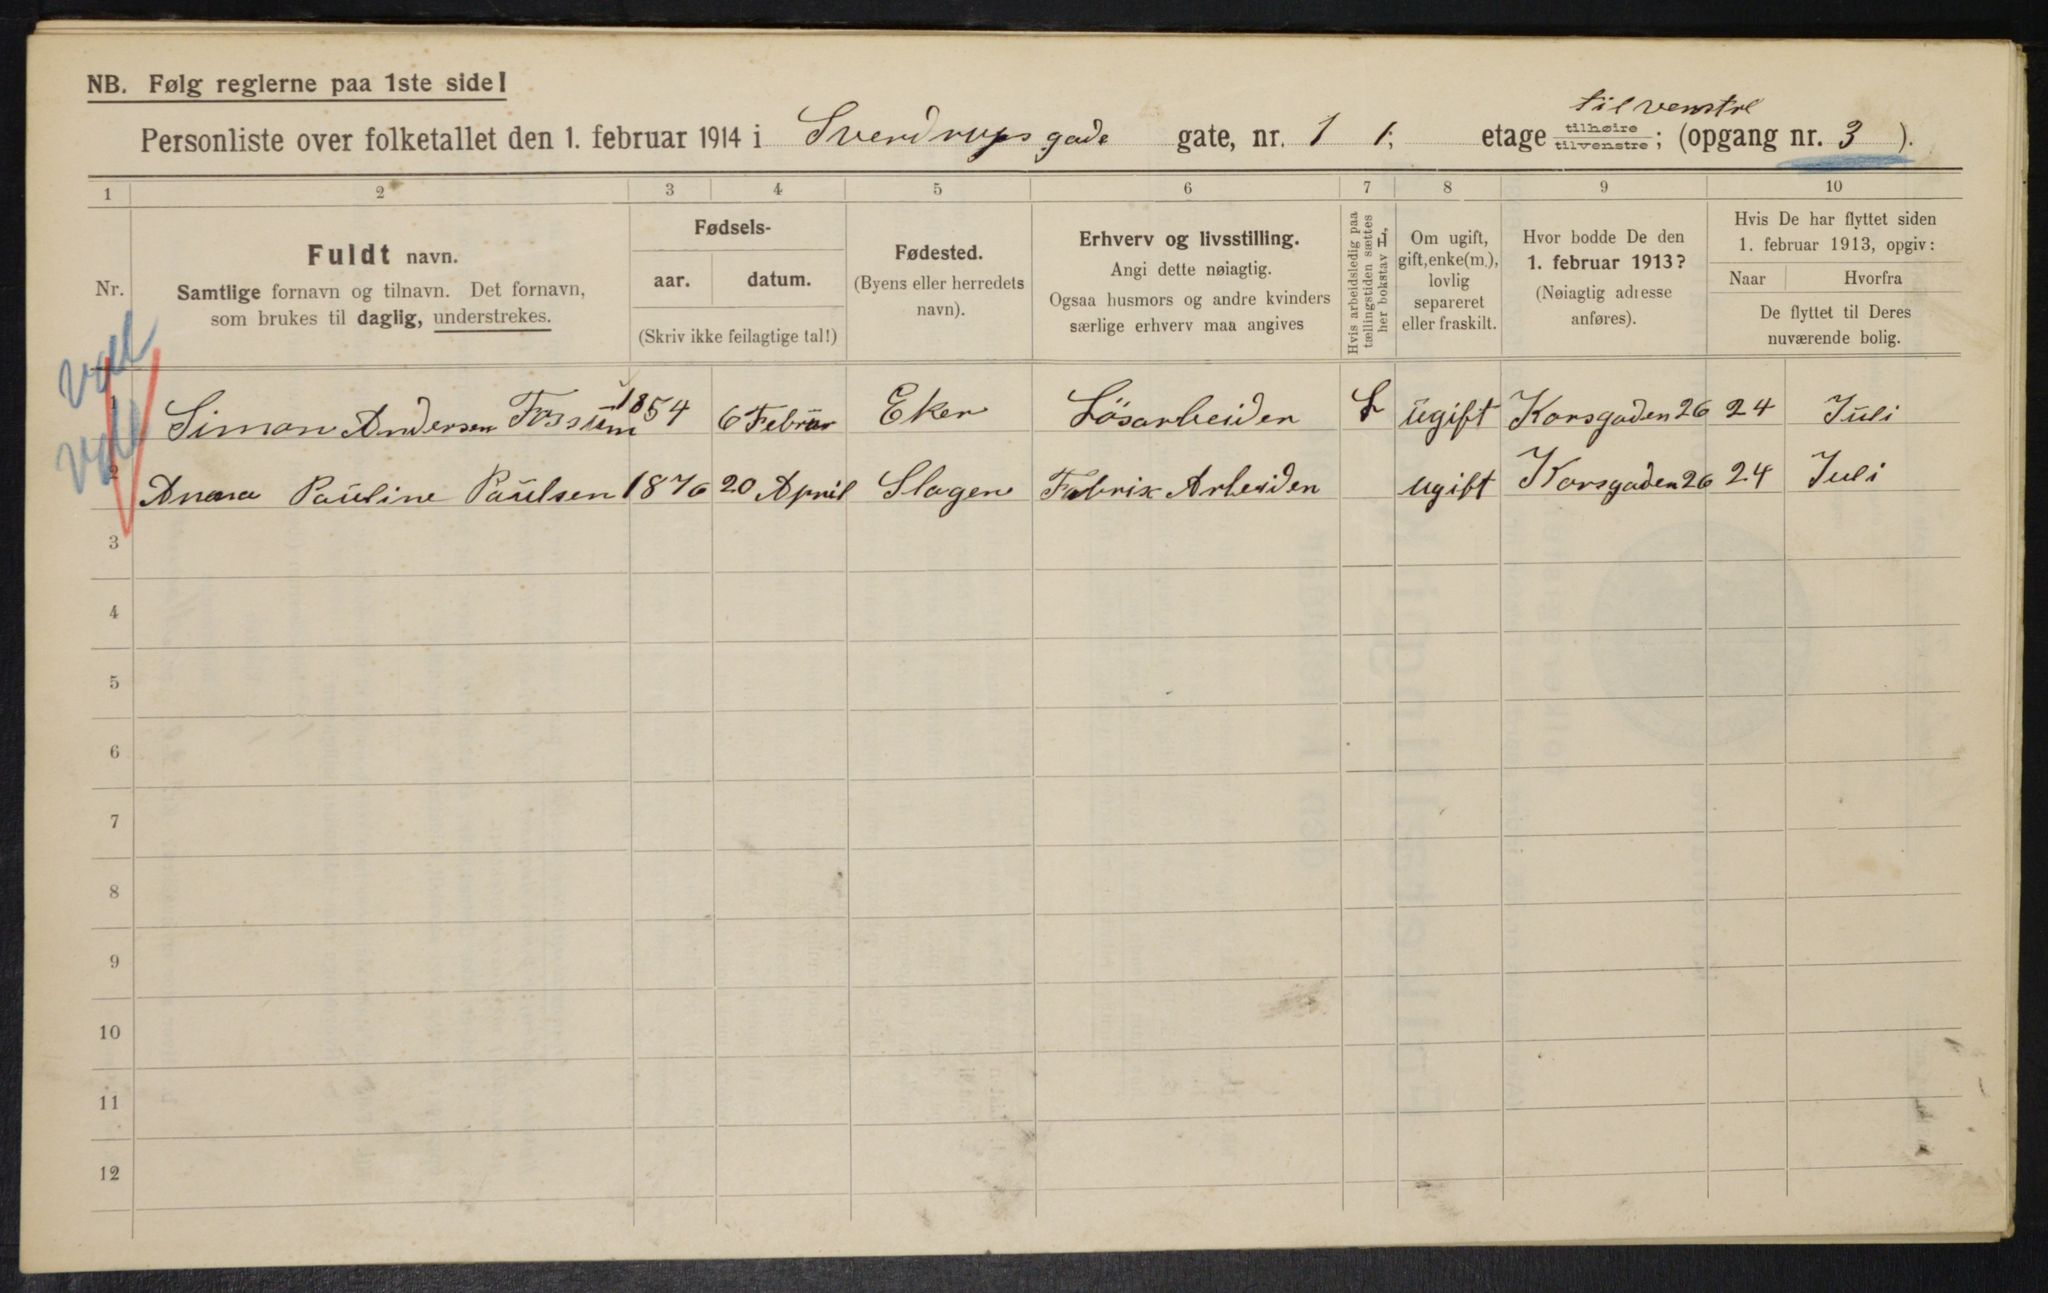 NB. Følg reglerne paa 1ste side!
til venstre
Personliste over folketallet den 1. februar 1914 i Sverdrups gade gate, nr. 1 1; etage tilhøire tilvenstre; (opgang nr. 3 ).
1 2 3 4 5 6 7 8 9 10
Nr.
Fuldt navn.
Samtlige fornavn og tilnavn. Det fornavn,
som brukes til daglig, understrekes.
Fødsels-
aar. datum.
(Skriv ikke feilagtige tal!)
Fødested.
(Byens eller herredets
navn).
Erhverv og livsstilling.
Angi dette nøiagtig.
Ogsaa husmors og andre kvinders
særlige erhverv maa angives
Hvis arbeidsledig paa
tællingstiden sættes
her bokstav L.
Om ugift,
gift, enke(m.),
lovlig
separeret
eller fraskilt.
Hvor bodde De den
1. februar 1913?
(Nøiagtig adresse
anføres).
Hvis De har flyttet siden
1. februar 1913, opgiv:
Naar Hvorfra
De flyttet til Deres
nuværende bolig.
1 Simon Andersen Fossum 1854 6 Februar Eker Lösarbeider L ugift Korsgaden 26 24 Juli
2 Anna Pauline Paulsen 1876 20 April Slagen Fabrik Arbeider ugift Korsgaden 26 24 Juli
3
4
5
6
7
8
9
10
11
12